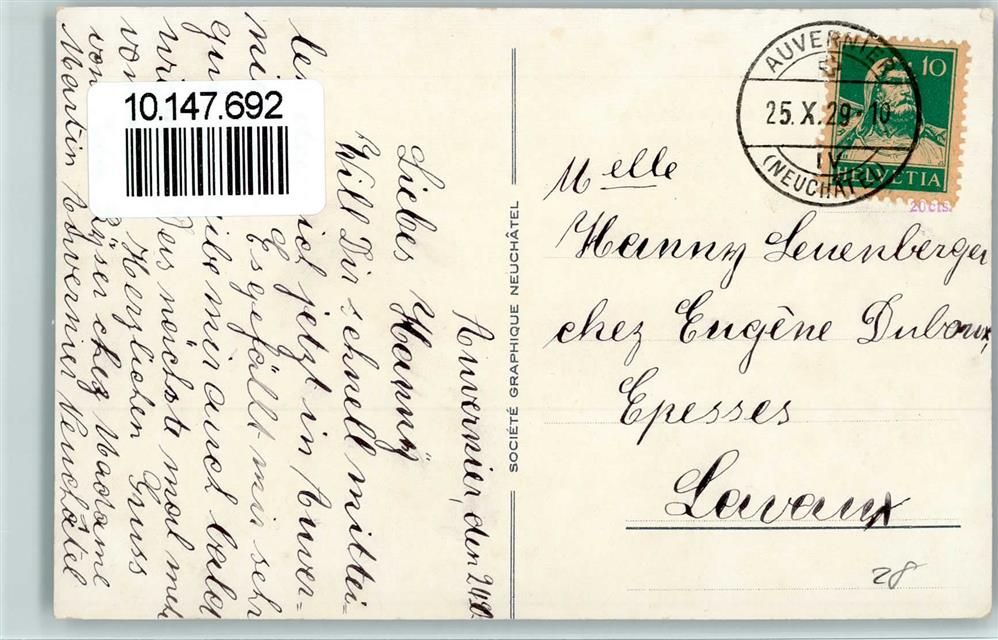 10.147.692
Auvernier, den 24.
Liebes Hanny
Will Dir schnell mittei-
len ich jetzt in Auver-
ni Es gefällt mir sehr
gu ibe mir auch bald
wi Des nächste mal meh
von Herzlichen Gruss
von chez Madame
Martin Auvernier Neuchâtel
SOCIÉTÉ GRAPHIQUE NEUCHÂTEL
AUVERNIER
25.X.29-10
IV
(NEUCHÂTEL)
10
HELVETIA
20 cts.
Melle
Hanny Leuenberger
chez Eugène Duboux,
Epesses
Lavaux
28